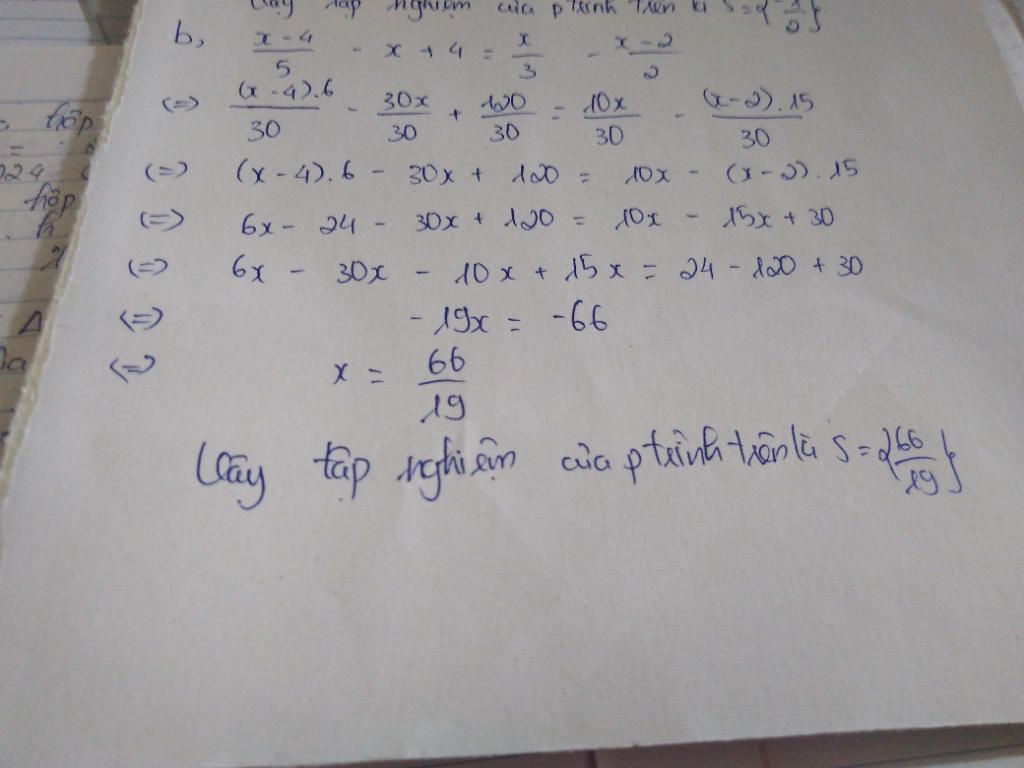 Vậy tập nghiệm của ptrình trên là S = {
b, (x - 4)/5 - x + 4 = x/3 - (x - 2)/2
<=> ((x - 4).6)/30 - 30x/30 + 120/30 = 10x/30 - ((x - 2).15)/30
<=> (x - 4).6 - 30x + 120 = 10x - (x - 2).15
<=> 6x - 24 - 30x + 120 = 10x - 15x + 30
<=> 6x - 30x - 10x + 15x = 24 - 120 + 30
<=> - 19x = -66
<=> x = 66/19
Vậy tập nghiệm của ptrình trên là S = {66/19}
hôp
24
hôp
h
Δ